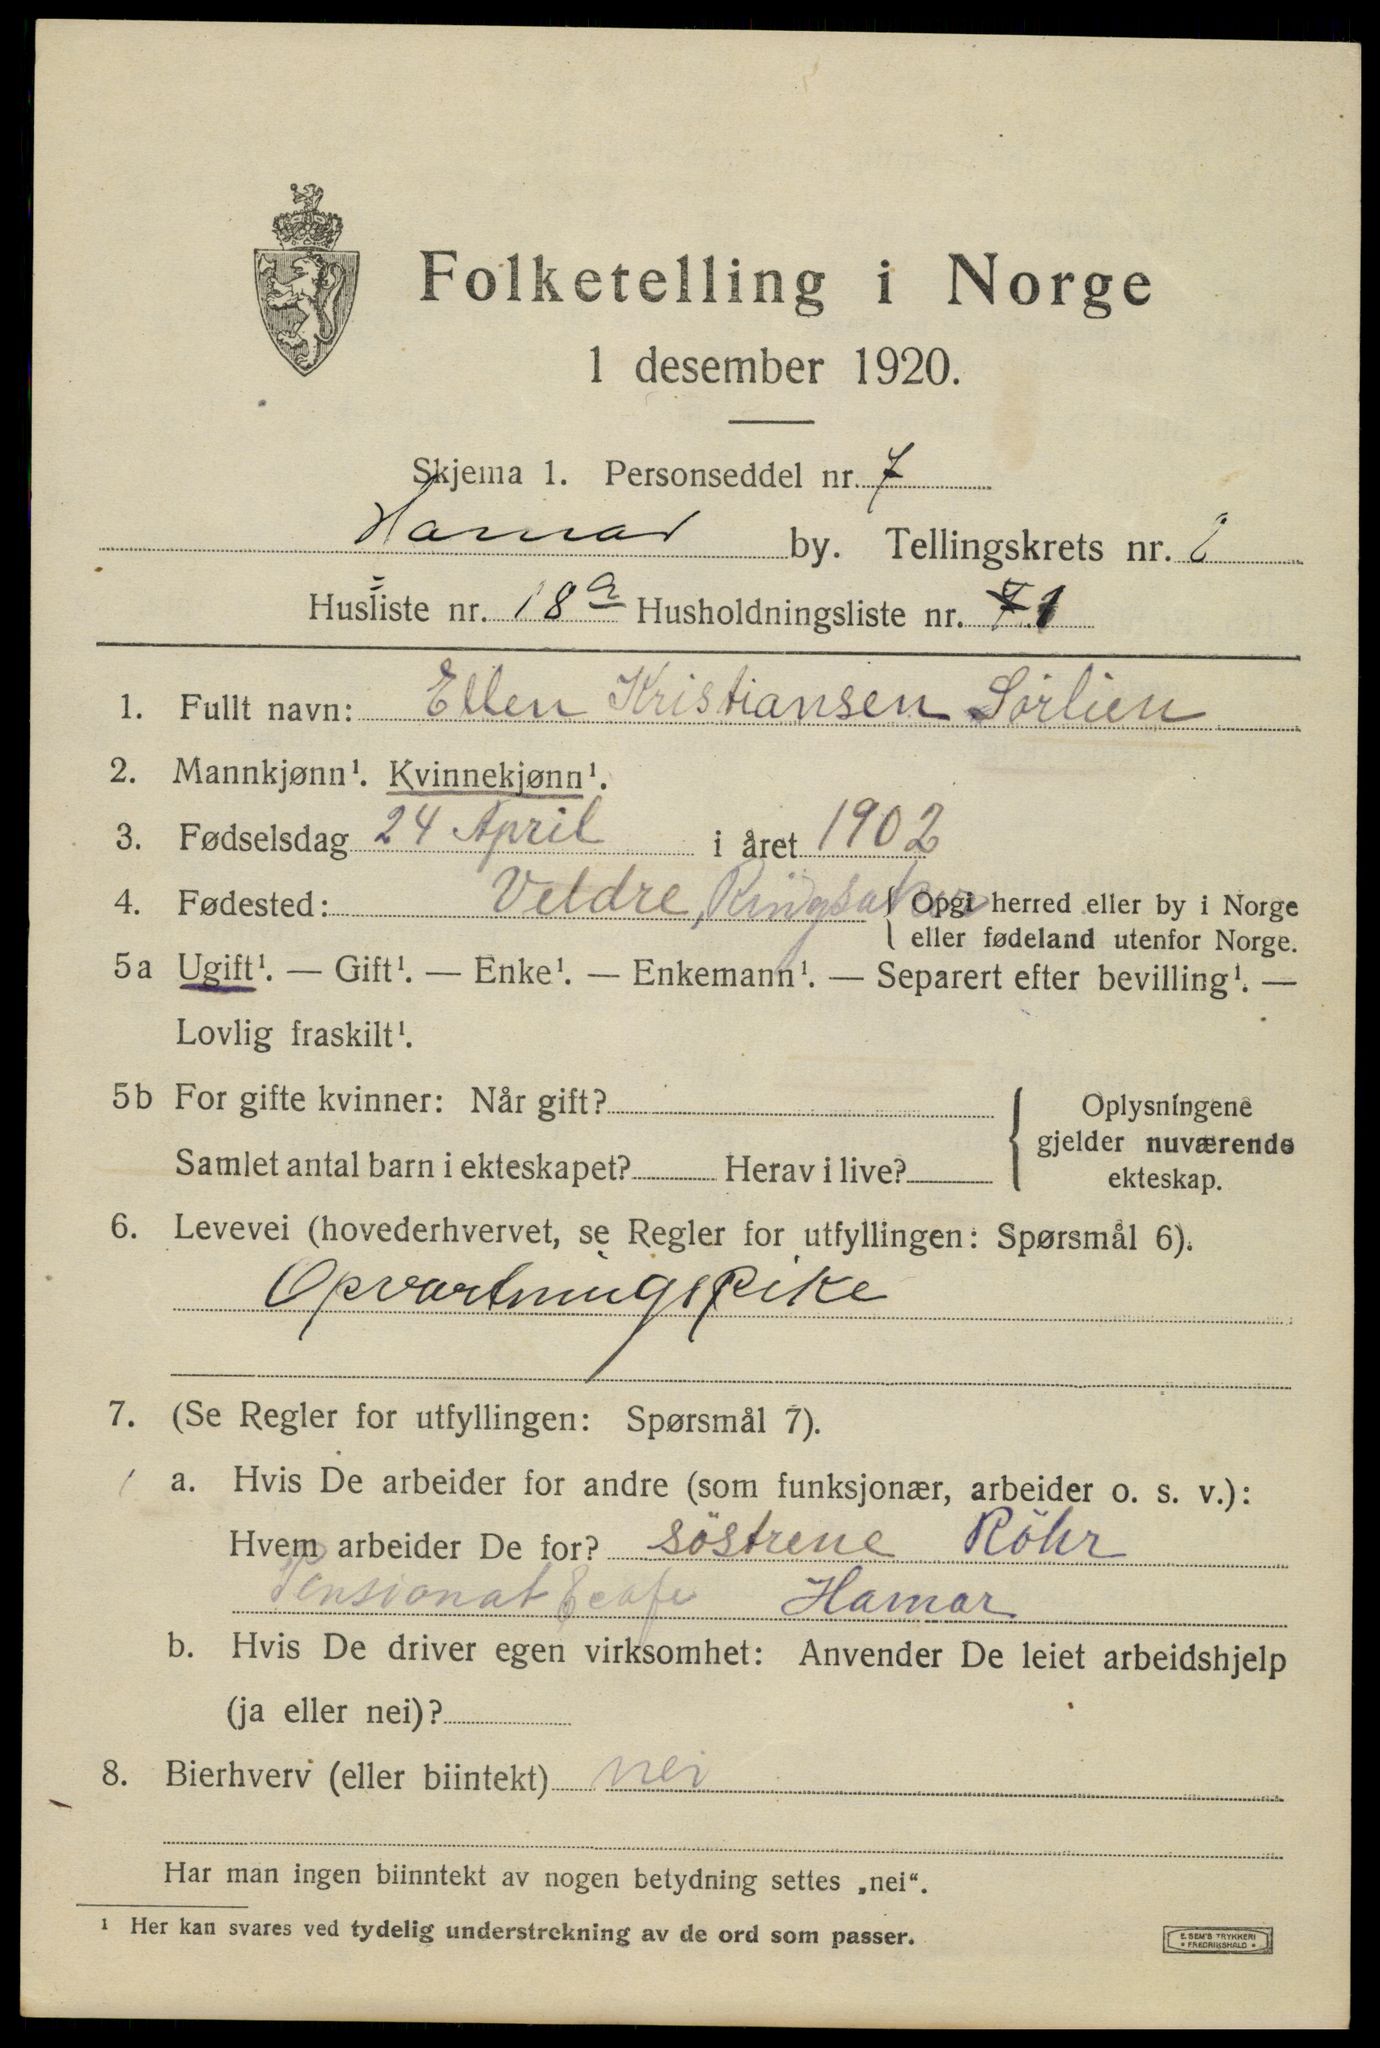 Folketelling i Norge
1 desember 1920.
Skjema 1. Personseddel nr. 7
Hamar by. Tellingskrets nr. 2
Husliste nr. 18a Husholdningsliste nr. 1
1. Fullt navn: Ellen Kristiansen Sörlien
2. Mannkjønn¹. Kvinnekjønn¹.
3. Fødselsdag 24 April i året 1902
4. Fødested: Veldre, Ringsaker { Opgi herred eller by i Norge
eller fødeland utenfor Norge.
5a Ugift¹. — Gift¹. — Enke¹. — Enkemann¹. — Separert efter bevilling¹. —
Lovlig fraskilt¹.
5b For gifte kvinner: Når gift? Oplysningene
gjelder nuværende
Samlet antal barn i ekteskapet? Herav i live? ekteskap.
6. Levevei (hovederhvervet, se Regler for utfyllingen: Spørsmål 6).
Opvartningspike
7. (Se Regler for utfyllingen: Spørsmål 7).
a. Hvis De arbeider for andre (som funksjonær, arbeider o. s. v.):
Hvem arbeider De for? söstrene Röhr
Pensionat & cafe Hamar
b. Hvis De driver egen virksomhet: Anvender De leiet arbeidshjelp
(ja eller nei)?
8. Bierhverv (eller biintekt) nei
Har man ingen biinntekt av nogen betydning settes „nei“.
¹ Her kan svares ved tydelig understrekning av de ord som passer.
E. SEM'S TRYKKERI
• FREDRIKSHALD •